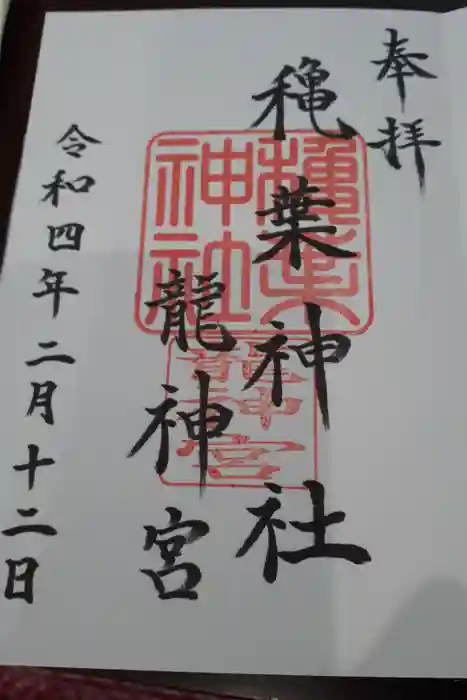 奉拝
穐葉神社
龍神宮
令和四年二月十二日
穐葉
神社
龍神宮